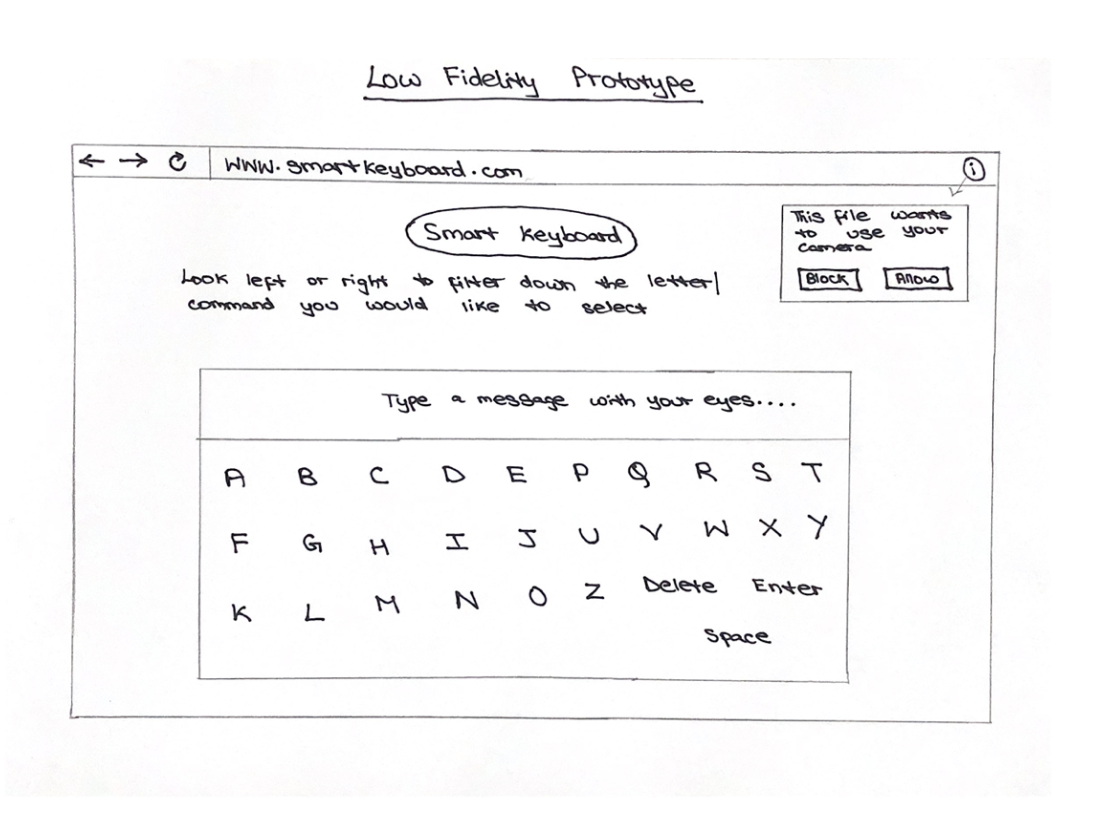 Low Fidelity Prototype
← → www.smartkeyboard.com i
Smart Keyboard
This file wants
to use your
camera
Block Allow
Look left or right to filter down the letter/
command you would like to select
Type a message with your eyes....
A B C D E P Q R S T
F G H I J U V W X Y
K L M N O Z Delete Enter
Space